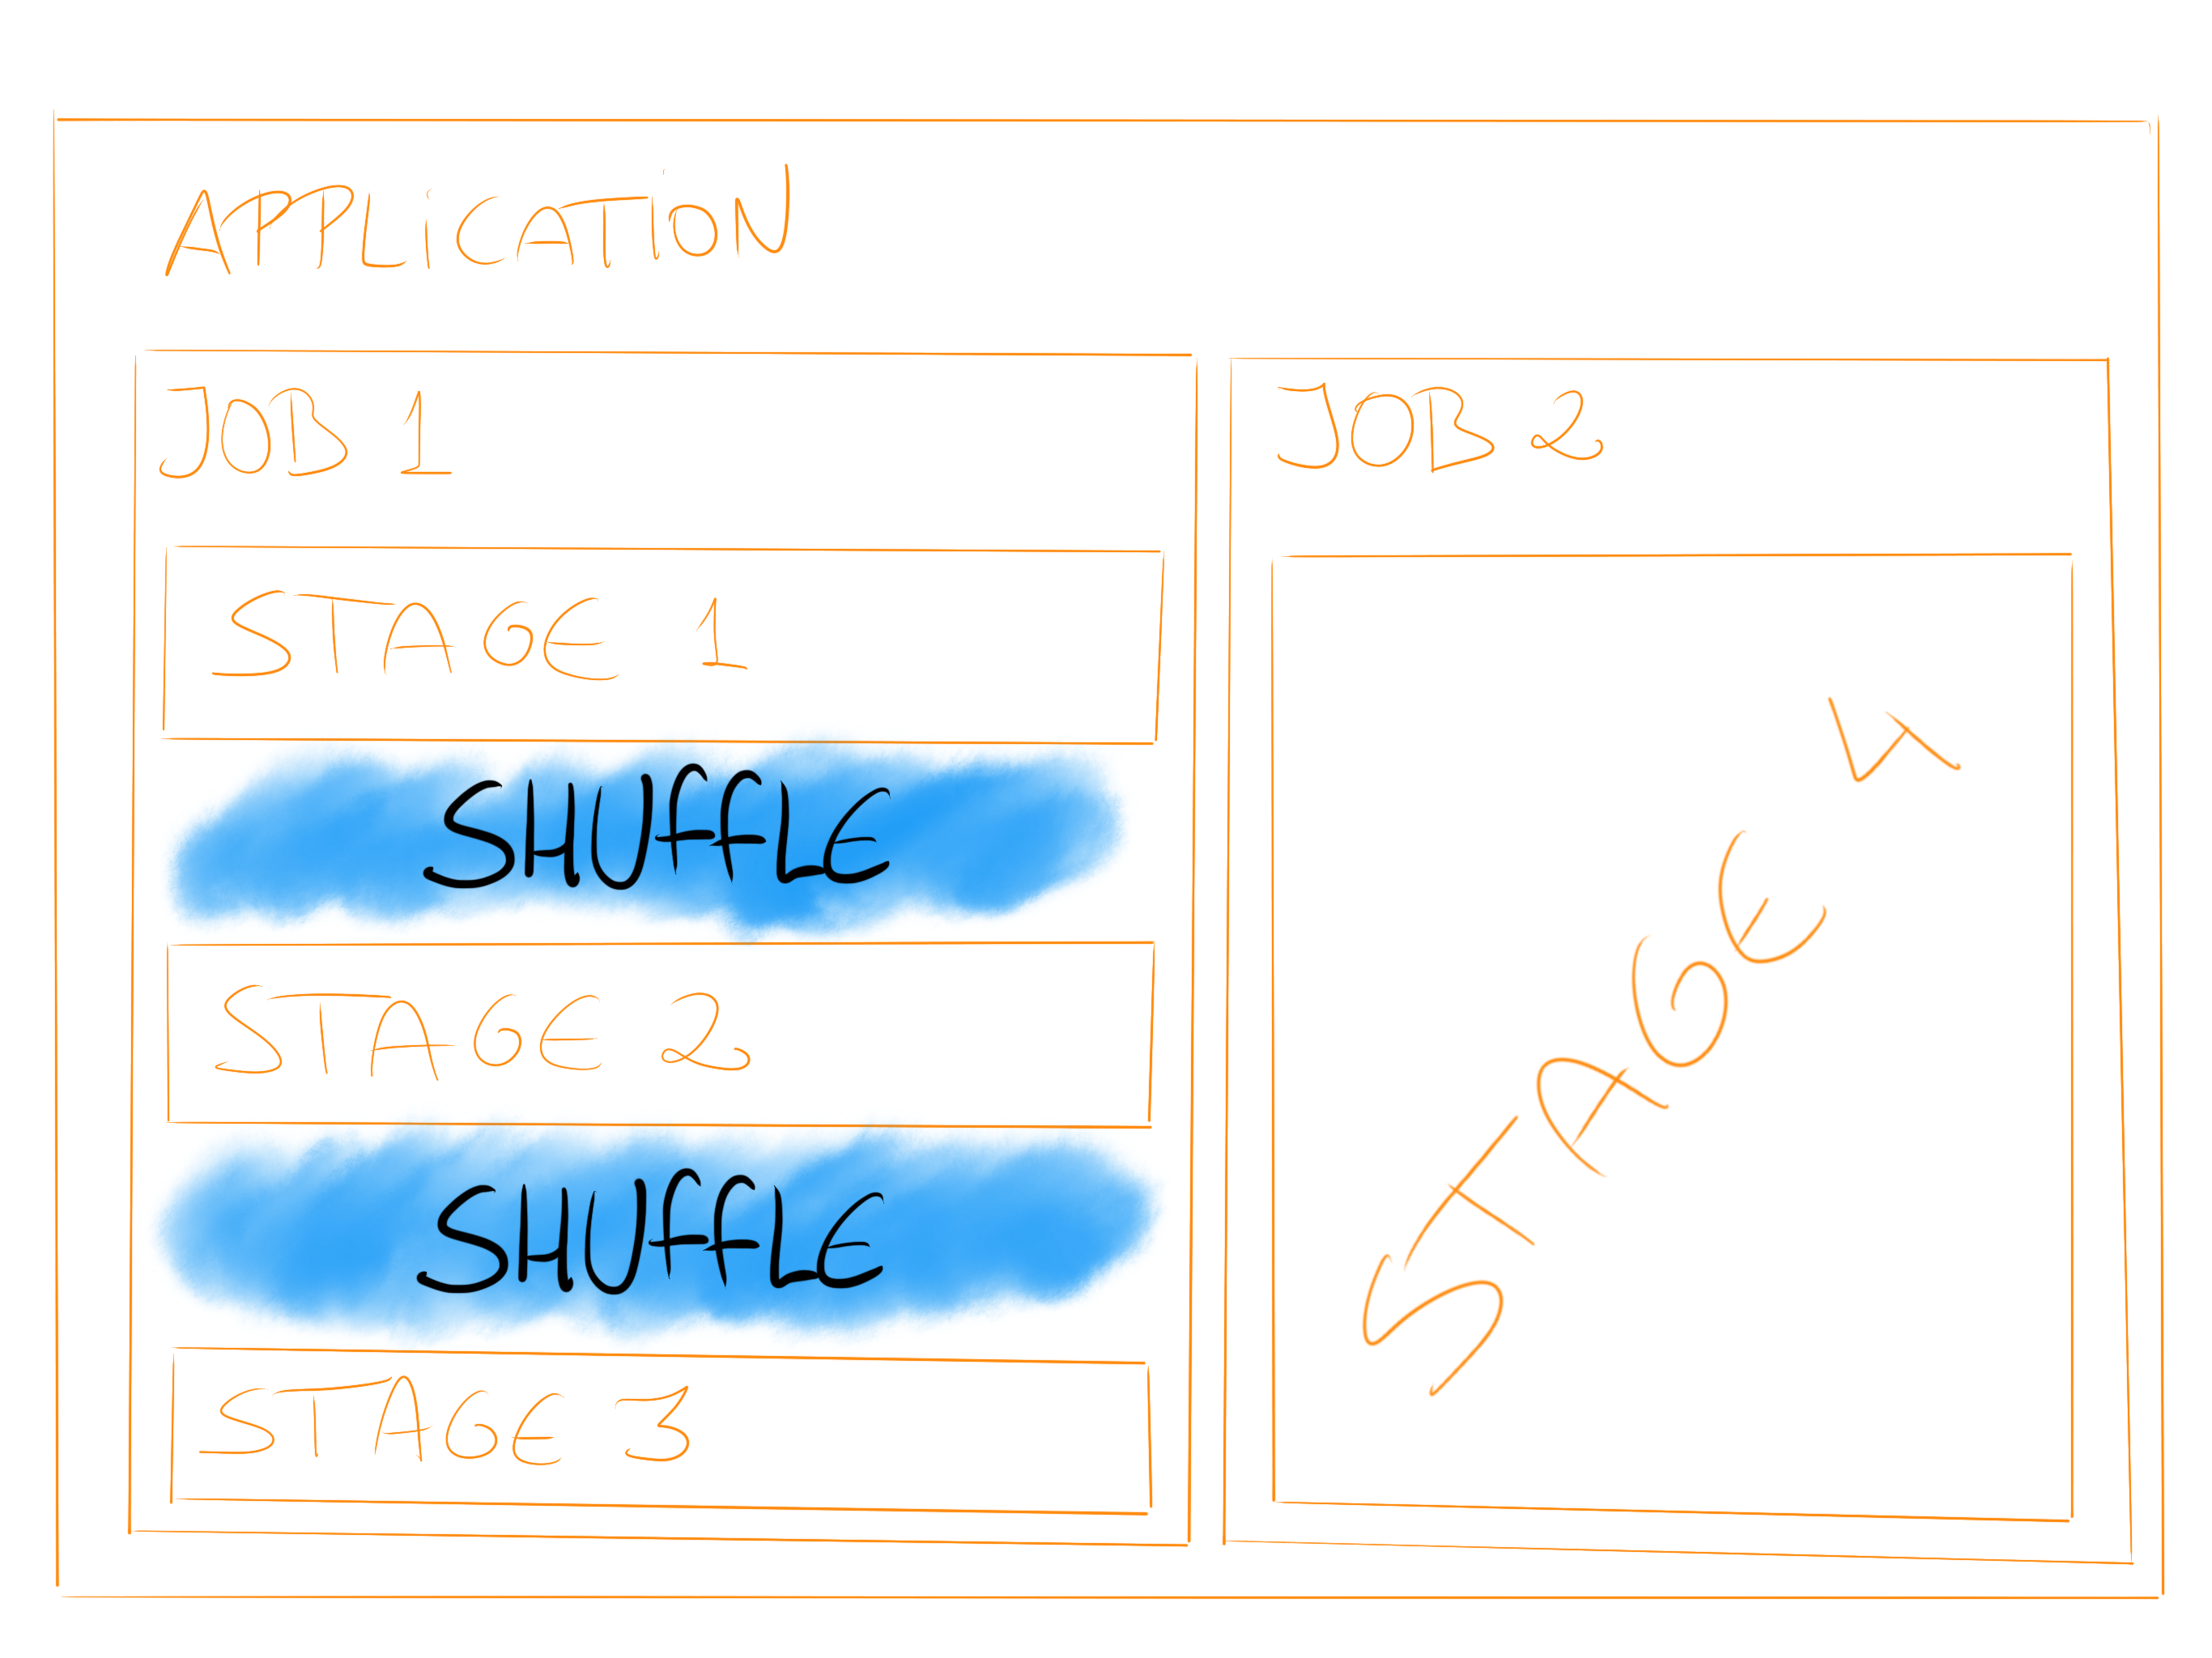 APPLiCATION
JOB 1
STAGE 1
SHUffLE
STAGE 2
SHUffLE
STAGE 3
JOB 2
STAGE 4